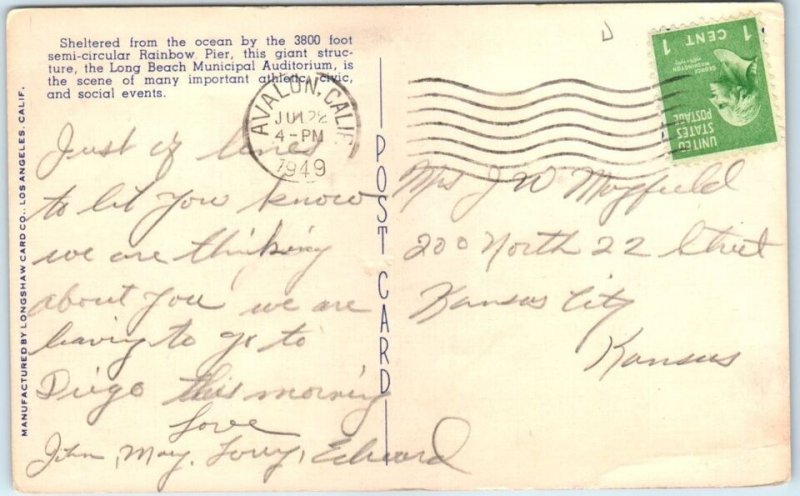 Sheltered from the ocean by the 3800 foot
semi-circular Rainbow Pier, this giant struc-
ture, the Long Beach Municipal Auditorium, is
the scene of many important athletic, civic,
and social events.
MANUFACTURED BY LONGSHAW CARD CO., LOS ANGELES, CALIF.
AVALON, CALIF.
JUL 22
4-PM
1949
POST CARD
1 CENT 1
GEORGE WASHINGTON
UNITED
STATES
POSTAGE
Just
to let you know
we are thinking
about you we are
leaving to go to
Diego this morning
Love
John, May, Edward
Mrs J W Mayfield
200 North 22 Street
Kansas City
Kansas